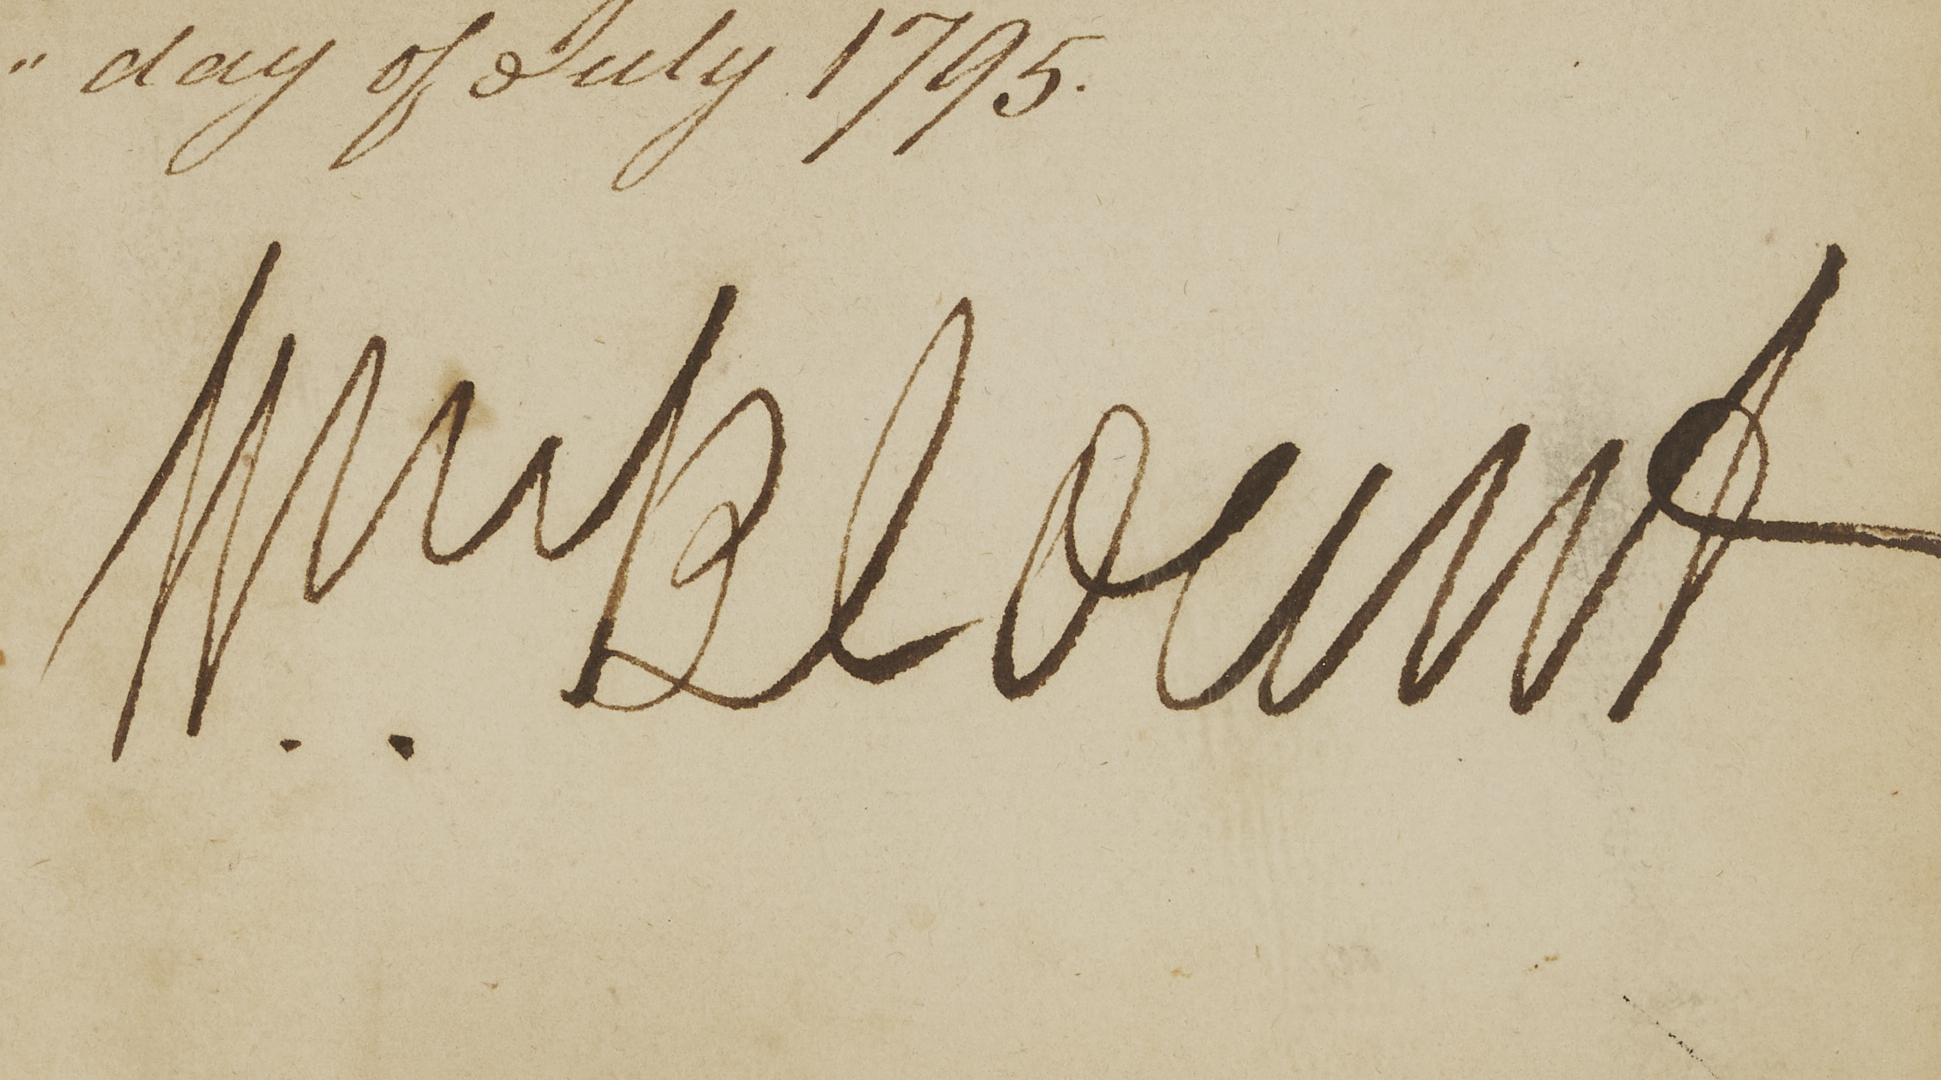 " day of July 1795.
Wm Blount